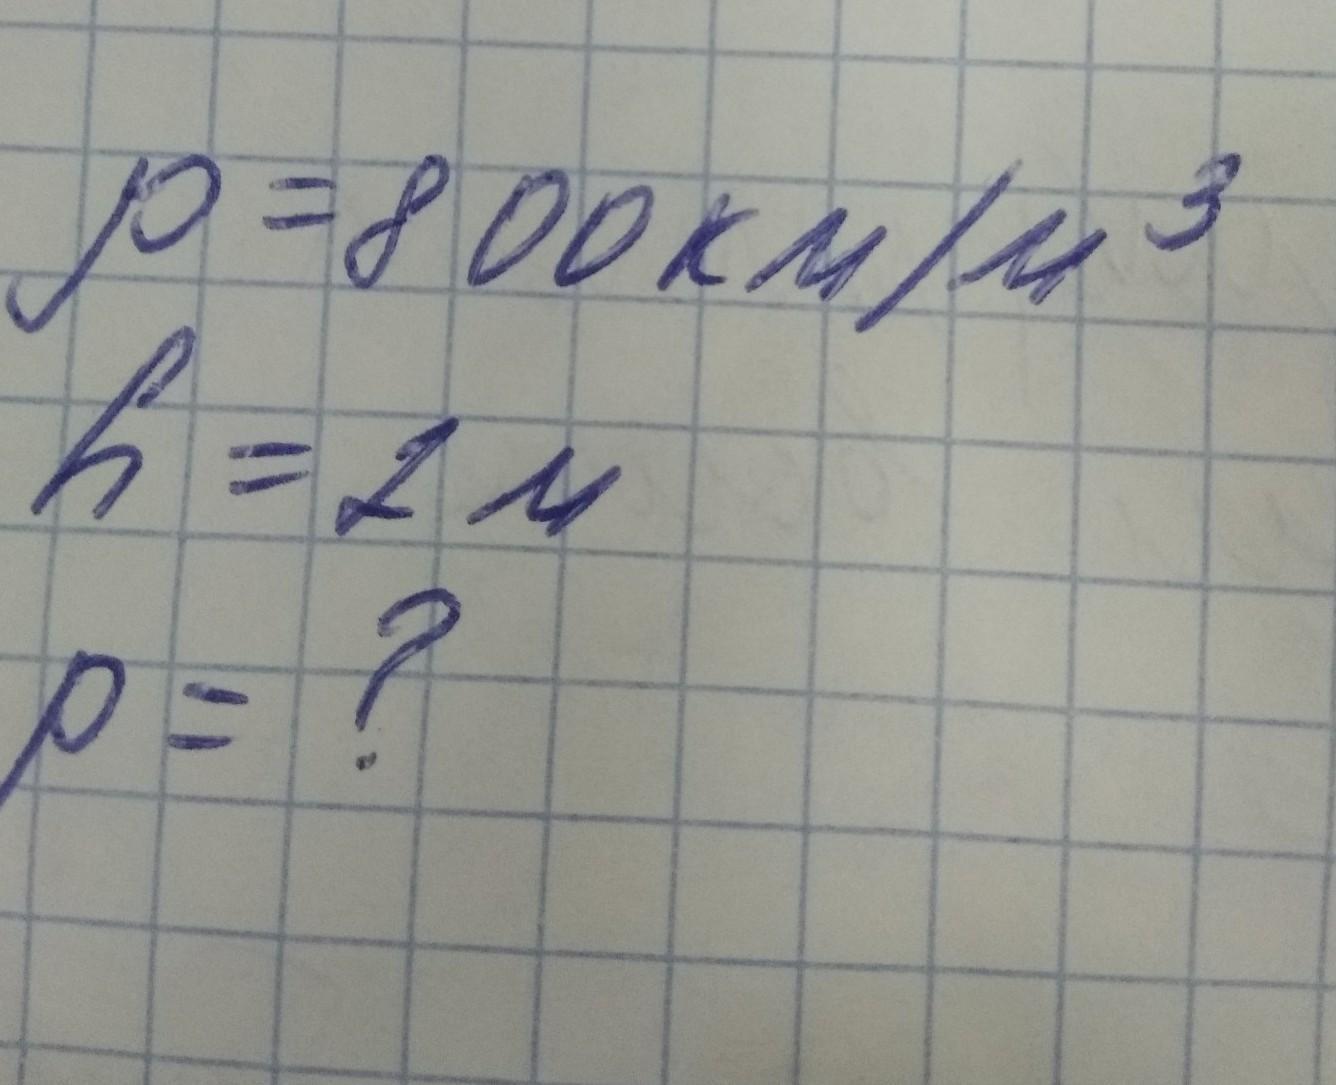 ρ = 800 км/м³
h = 2 м
p = ?